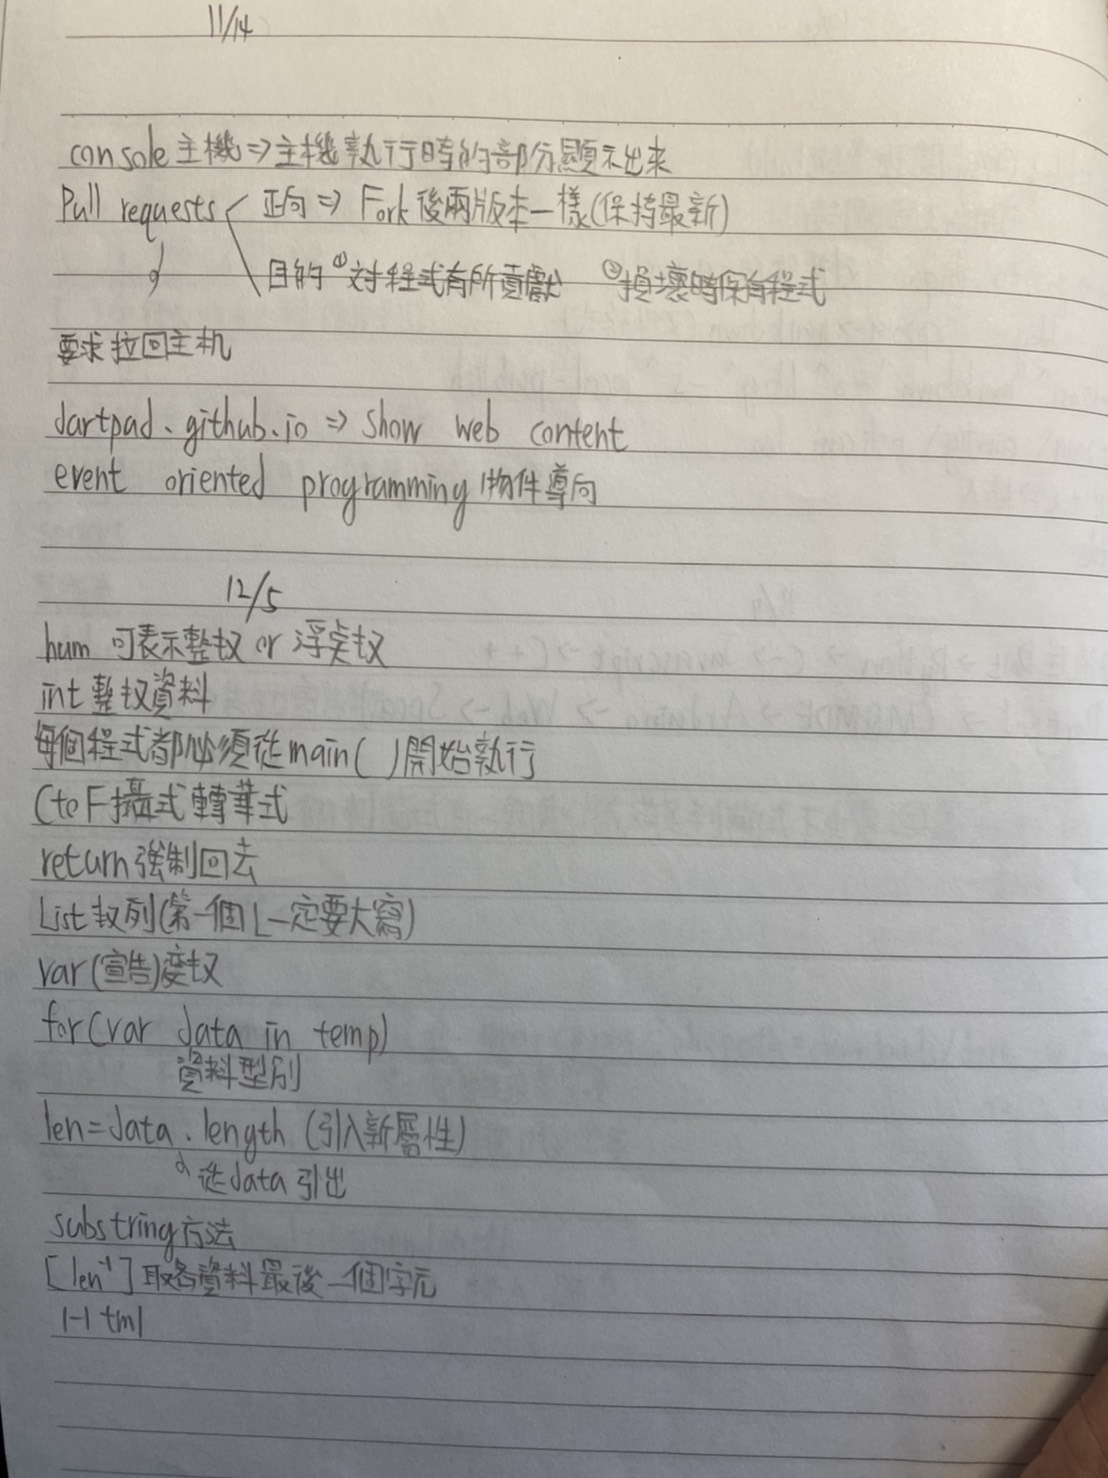 11/14
console 主機⇒主機執行時的部分顯示出來
Pull requests 正向 ⇒ Fork後兩版本一樣(保持最新)
目的 ①對程式有所貢獻 ②損壞時保有程式
要求拉回主机
dartpad.github.io ⇒ show web content
event oriented programming 物件導向
12/5
num 可表示整数 or 浮点数
int 整数資料
每個程式都必須從main( )開始執行
CtoF攝式轉華式
return強制回去
List 数列(第一個L一定要大寫)
var(宣告)變数
for(var data in temp)
資料型別
len=data.length (引入新屬性)
從data引出
substring方法
[len-1]取各資料最後一個字元
Html